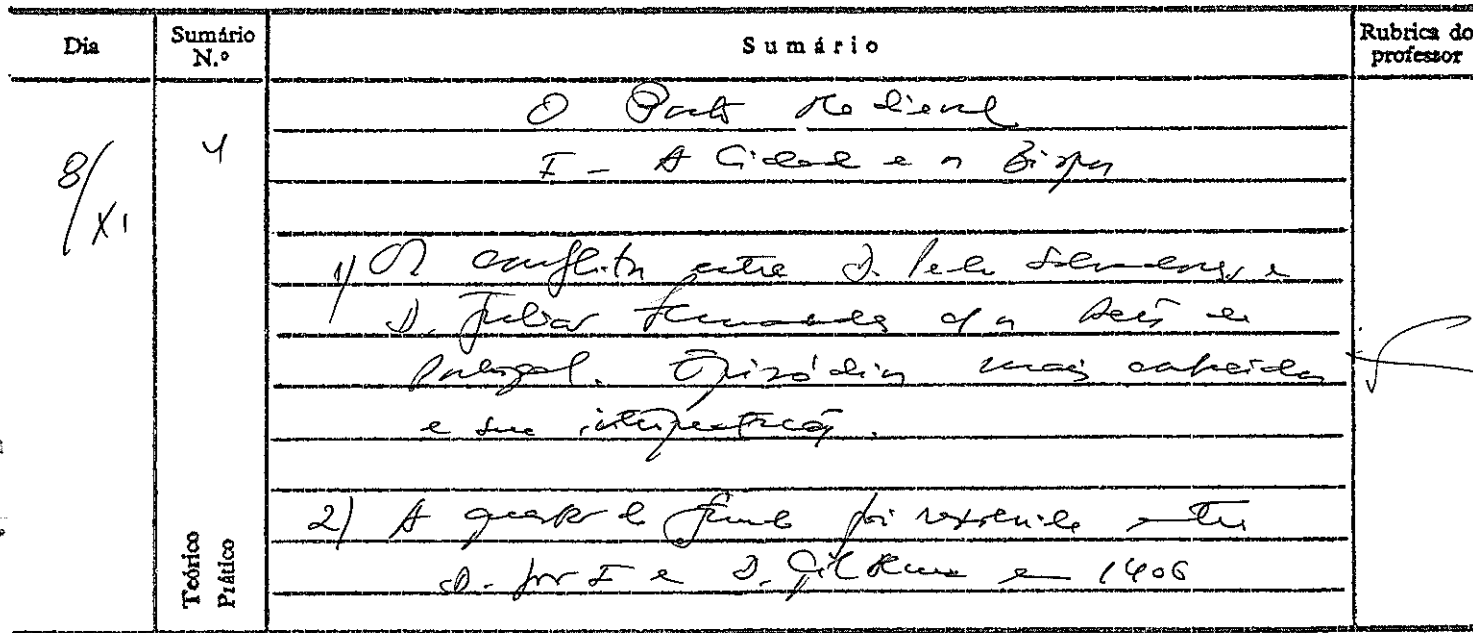 Dia
Sumário N.º
Sumário
Rubrica do professor
8/XI
4
O Porto Medieval
I - A Cidade e os Bispos
1) Os conflitos entre D. Pedro Salvadores e
D. Julião Fernandes com os Reis de
Portugal. Episódios mais conhecidos
e sua interpretação.
2) A questão de fundo foi resolvida entre
D. João I e D. Gil Alma em 1406
Teórico
Prático